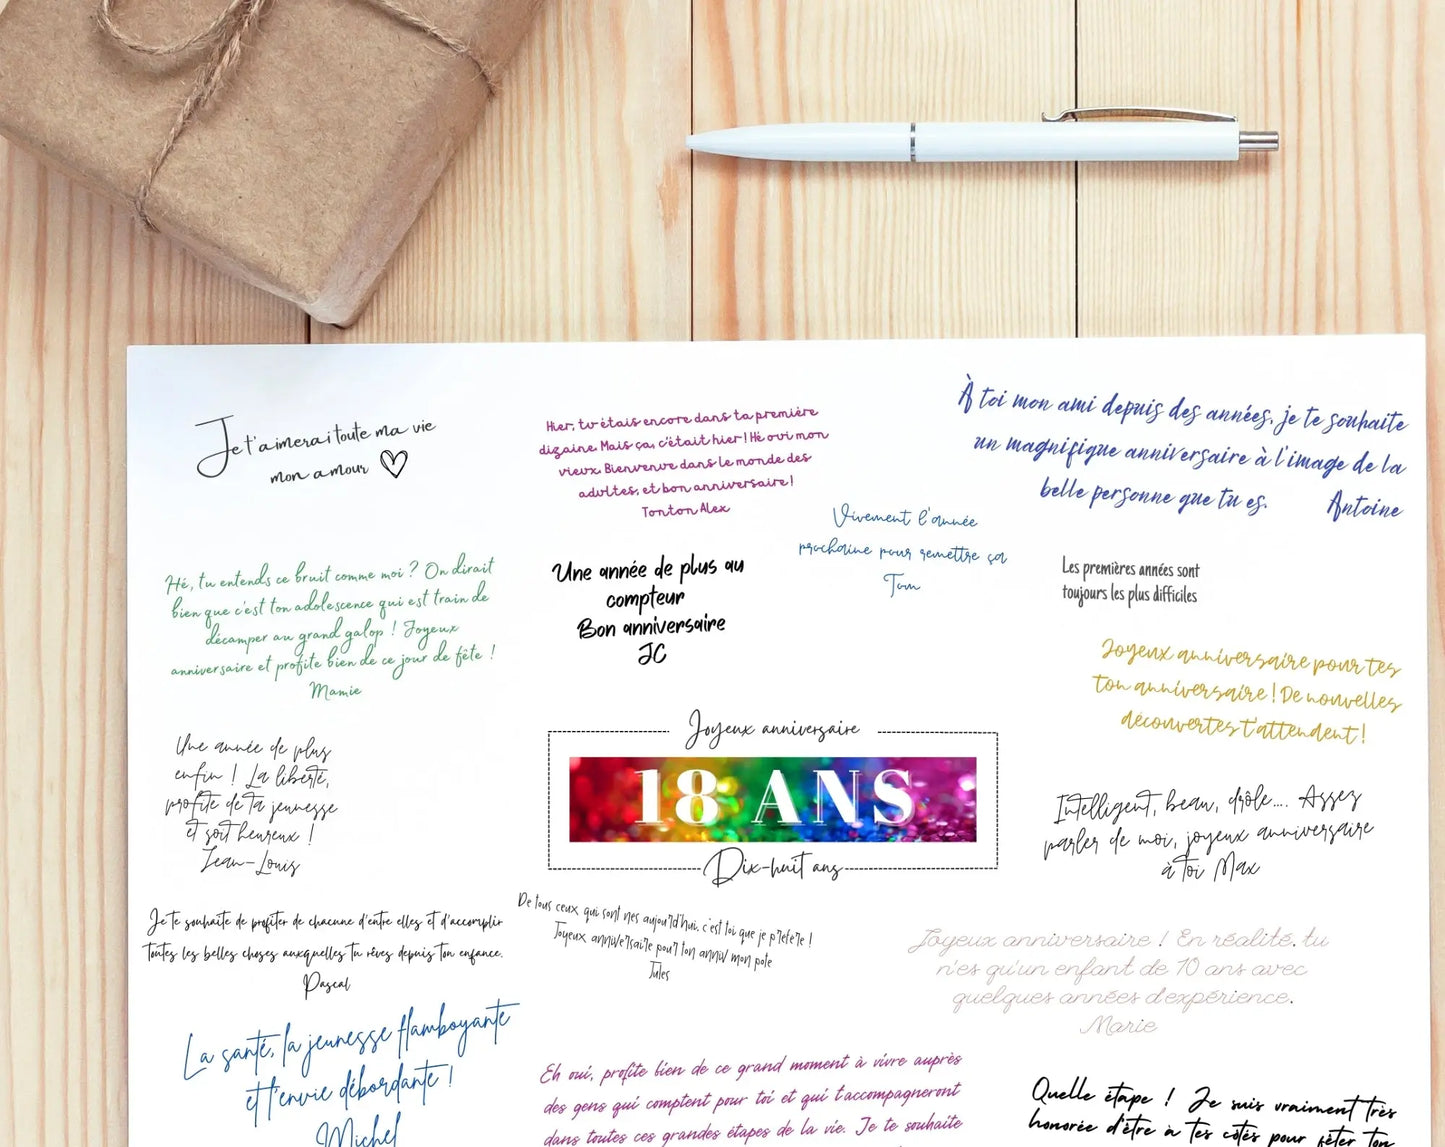 Je t'aimerai toute ma vie
mon amour
Hier, tu étais encore dans ta première
dizaine. Mais ça, c'était hier ! Hé oui mon
vieux. Bienvenue dans le monde des
adultes, et bon anniversaire !
Tonton Alex
À toi mon ami depuis des années, je te souhaite
un magnifique anniversaire à l'image de la
belle personne que tu es.
Antoine
Vivement l'année
prochaine pour remettre ça
Tom
Hé, tu entends ce bruit comme moi ? On dirait
bien que c'est ton adolescence qui est train de
décamper au grand galop ! Joyeux
anniversaire et profite bien de ce jour de fête !
Mamie
Une année de plus au
compteur
Bon anniversaire
JC
Les premières années sont
toujours les plus difficiles
Joyeux anniversaire pour tes
ton anniversaire ! De nouvelles
découvertes t'attendent !
Une année de plus
enfin ! La liberté,
profite de ta jeunesse
et soit heureux !
Jean-Louis
Joyeux anniversaire
18 ANS
Dix-huit ans
Intelligent, beau, drôle.... Assez
parler de moi, joyeux anniversaire
à toi Max
Je te souhaite de profiter de chacune d'entre elles et d'accomplir
toutes les belles choses auxquelles tu rêves depuis ton enfance.
Pascal
De tous ceux qui sont nés aujourd'hui, c'est toi que je préfère !
Joyeux anniversaire pour ton anniv mon pote
Jules
Joyeux anniversaire ! En réalité, tu
n'es qu'un enfant de 10 ans avec
quelques années d'expérience.
Marie
La santé, la jeunesse flamboyante
et l'envie débordante !
Michel
Eh oui, profite bien de ce grand moment à vivre auprès
des gens qui comptent pour toi et qui t'accompagneront
dans toutes ces grandes étapes de la vie. Je te souhaite
Quelle étape ! Je suis vraiment très
honorée d'être à tes côtés pour fêter ton